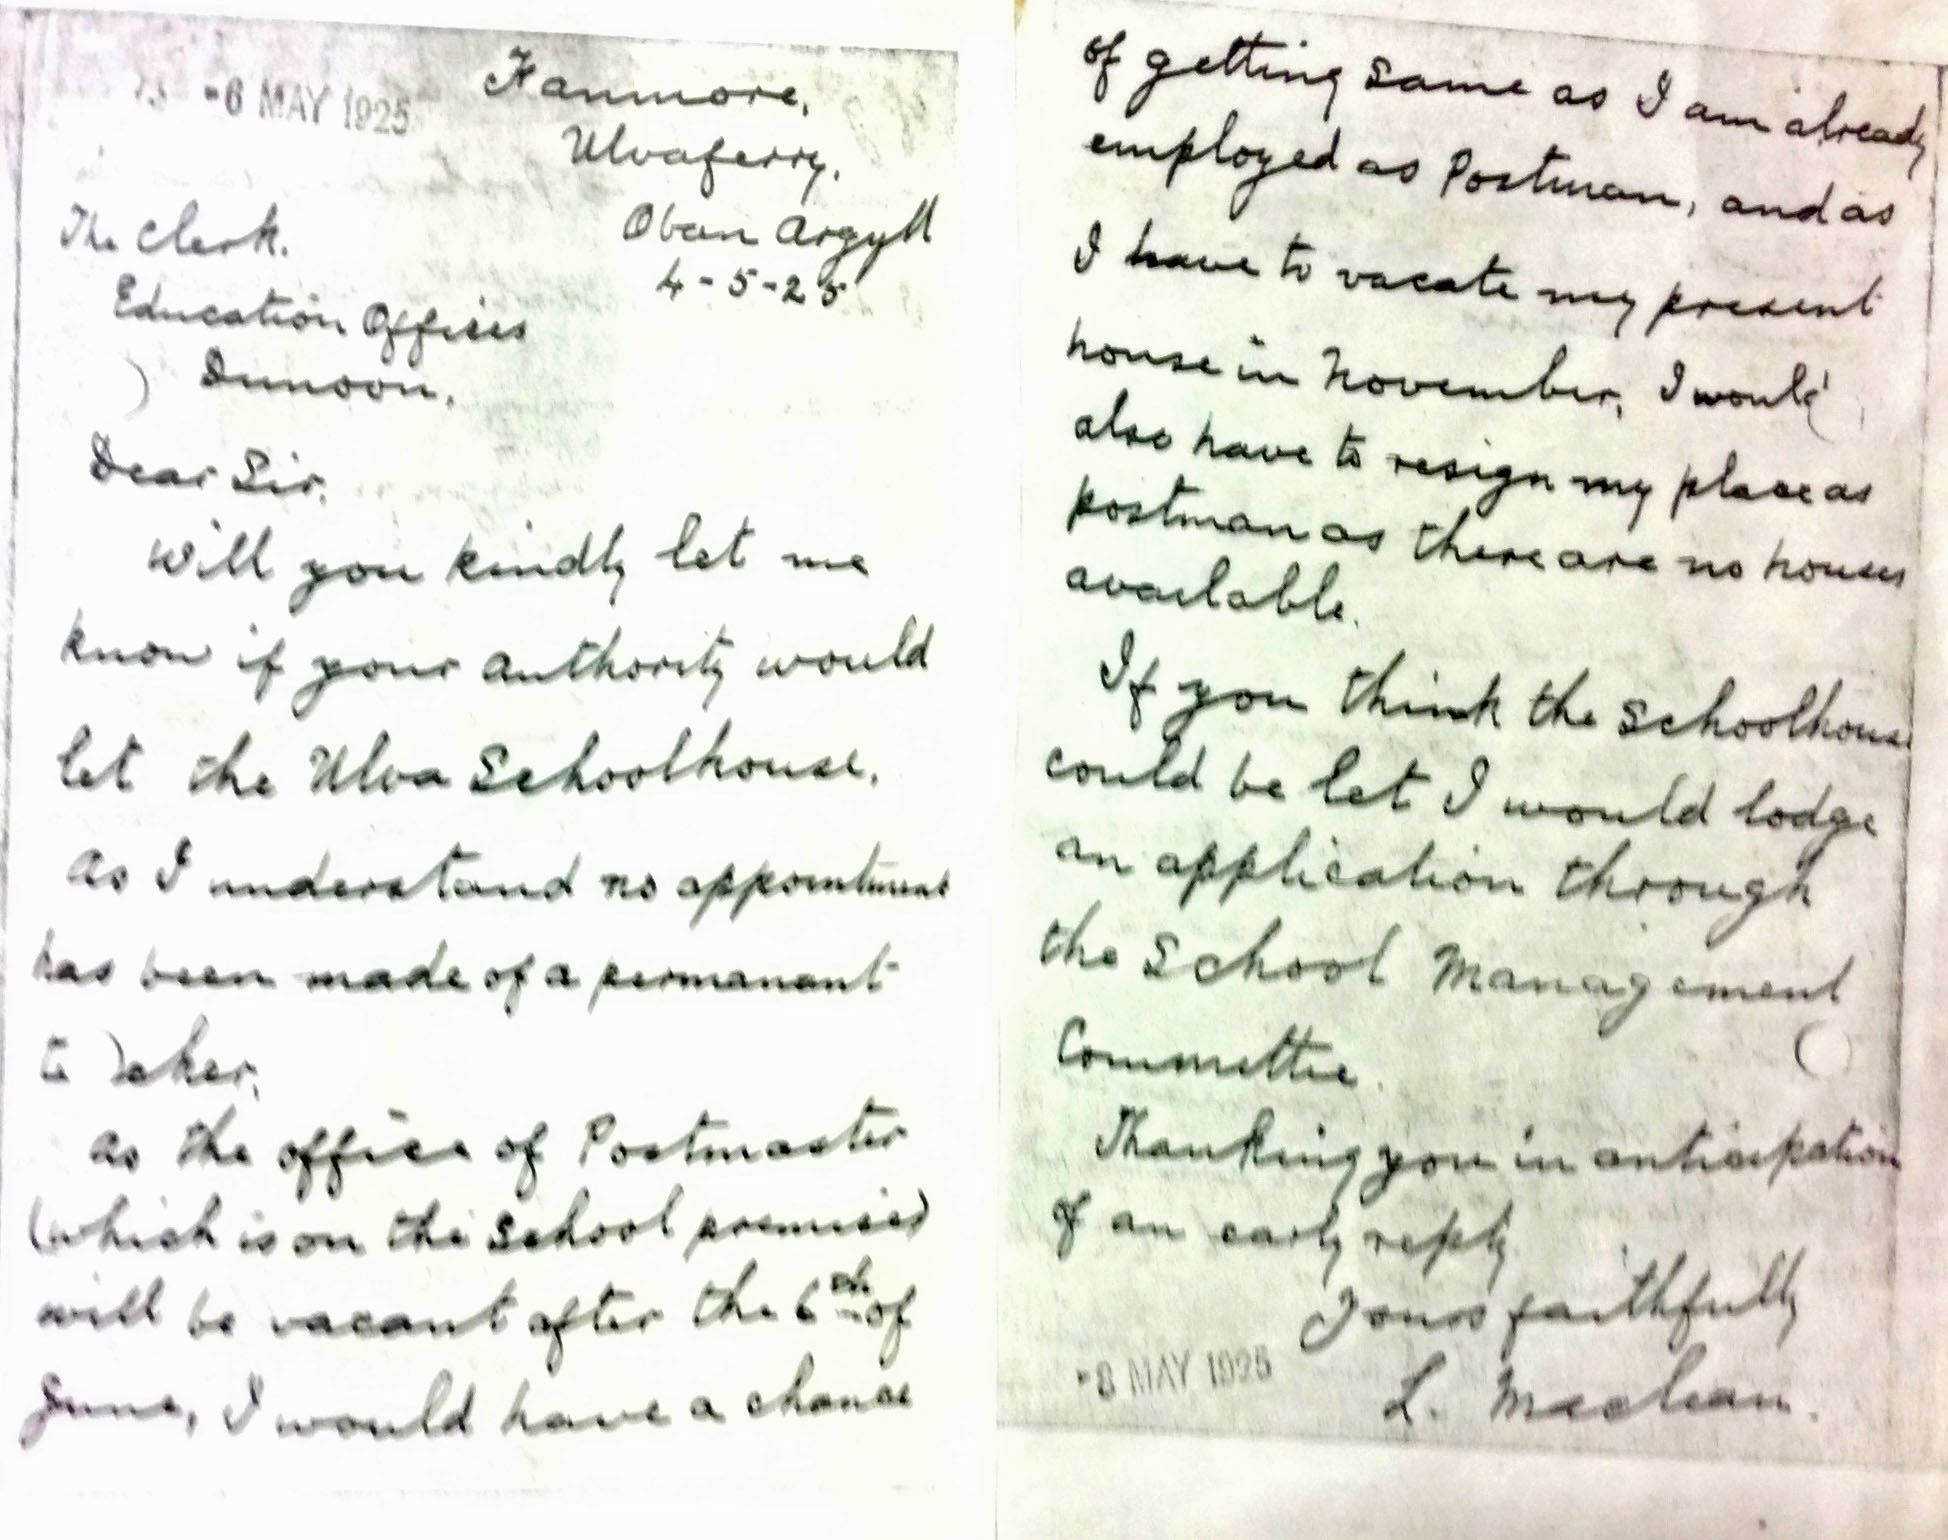 -6 MAY 1925
Fanmore,
Ulvaferry,
Oban Argyll
4-5-25
The Clerk.
Education Offices
Dunoon.
Dear Sir,
Will you kindly let me
know if your authority would
let the Ulva Schoolhouse,
as I understand no appointment
has been made of a permanant
teacher,
as the office of Postmaster
(which is on the School premises)
will be vacant after the 6th of
June, I would have a chance
of getting same as I am already
employed as Postman, and as
I have to vacate my present
house in November, I would
also have to resign my place as
postman as there are no houses
available.
If you think the Schoolhouse
could be let I would lodge
an application through
the School Management
Committee.
Thanking you in anticipation
of an early reply
Yours faithfully
L. Maclean.
-8 MAY 1925